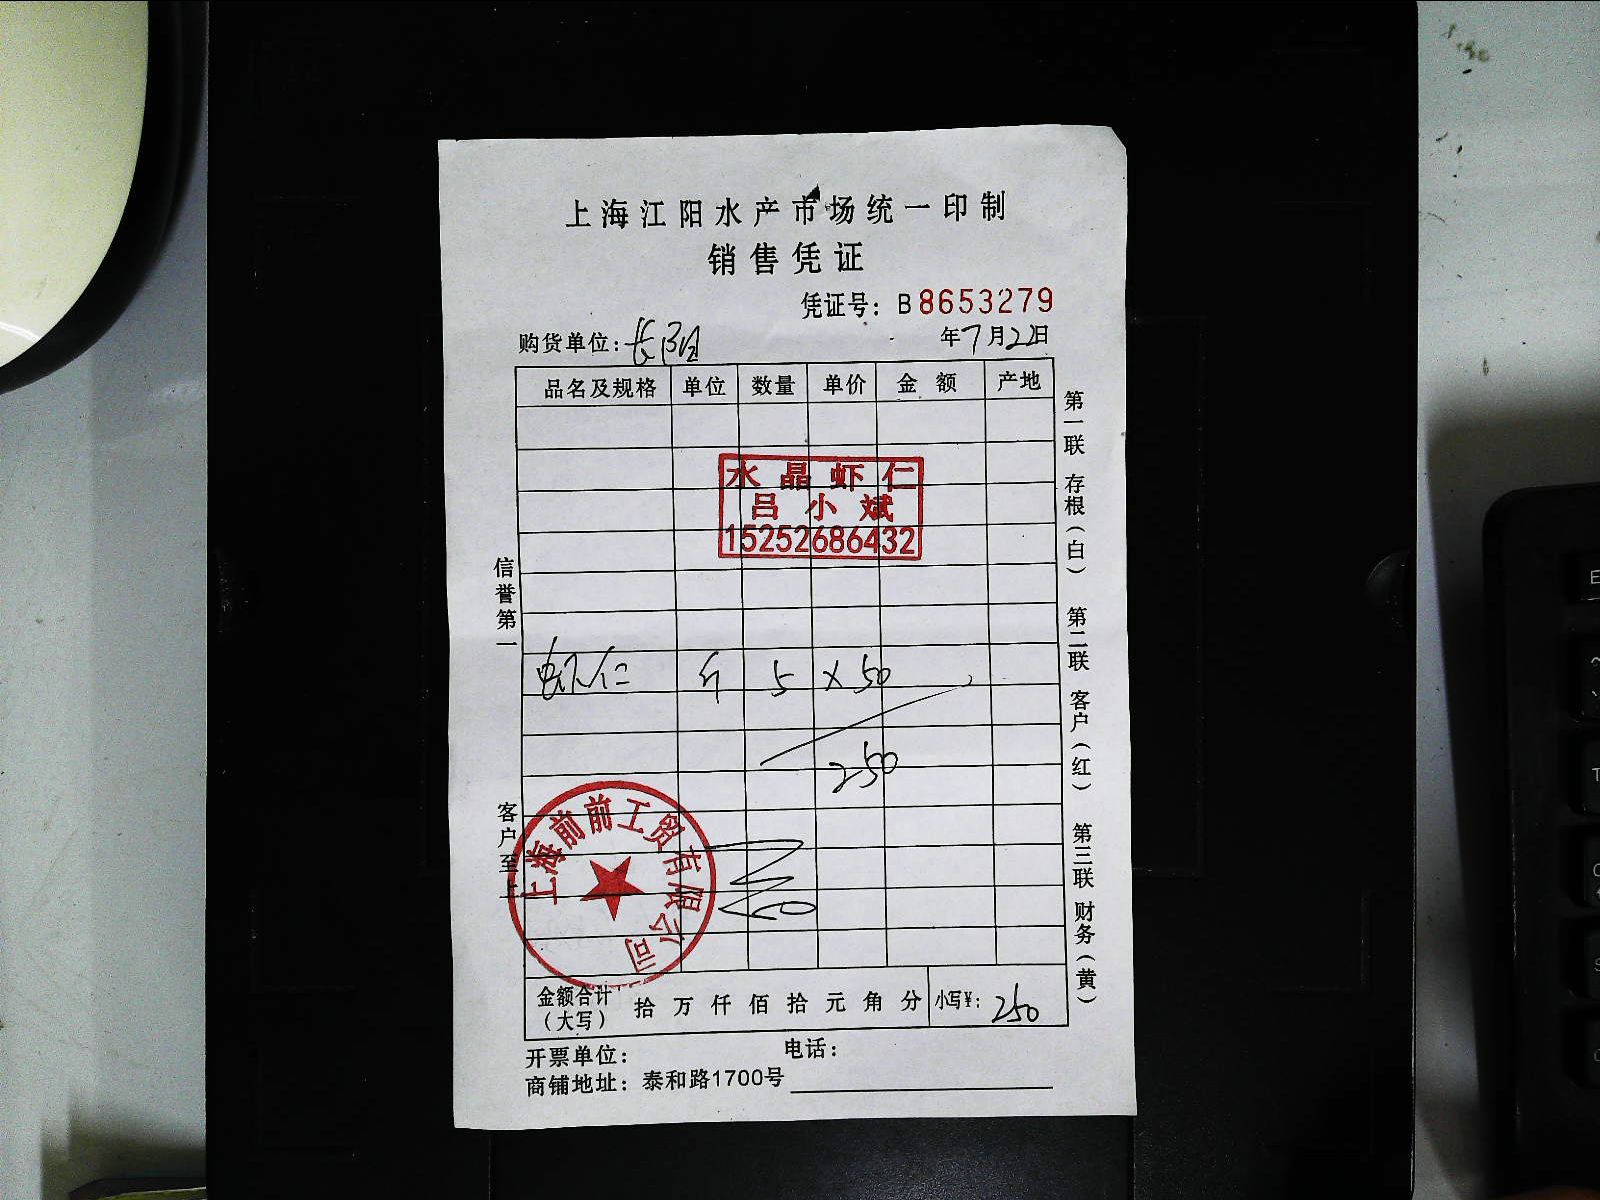 上海江阳水产市场统一印制
销售凭证
凭证号：B 8653279
购货单位：长阳
年7月22日
品名及规格 单位 数量 单价 金额 产地
水晶虾仁
吕小斌
15252686432
虾仁 斤 5 × 50
250
上海前前工贸有限公司
金额合计（大写） 拾 万 仟 佰 拾 元 角 分 小写¥：250
开票单位： 电话：
商铺地址：泰和路1700号
信誉第一
客户至上
第一联 存根（白） 第二联 客户（红） 第三联 财务（黄）